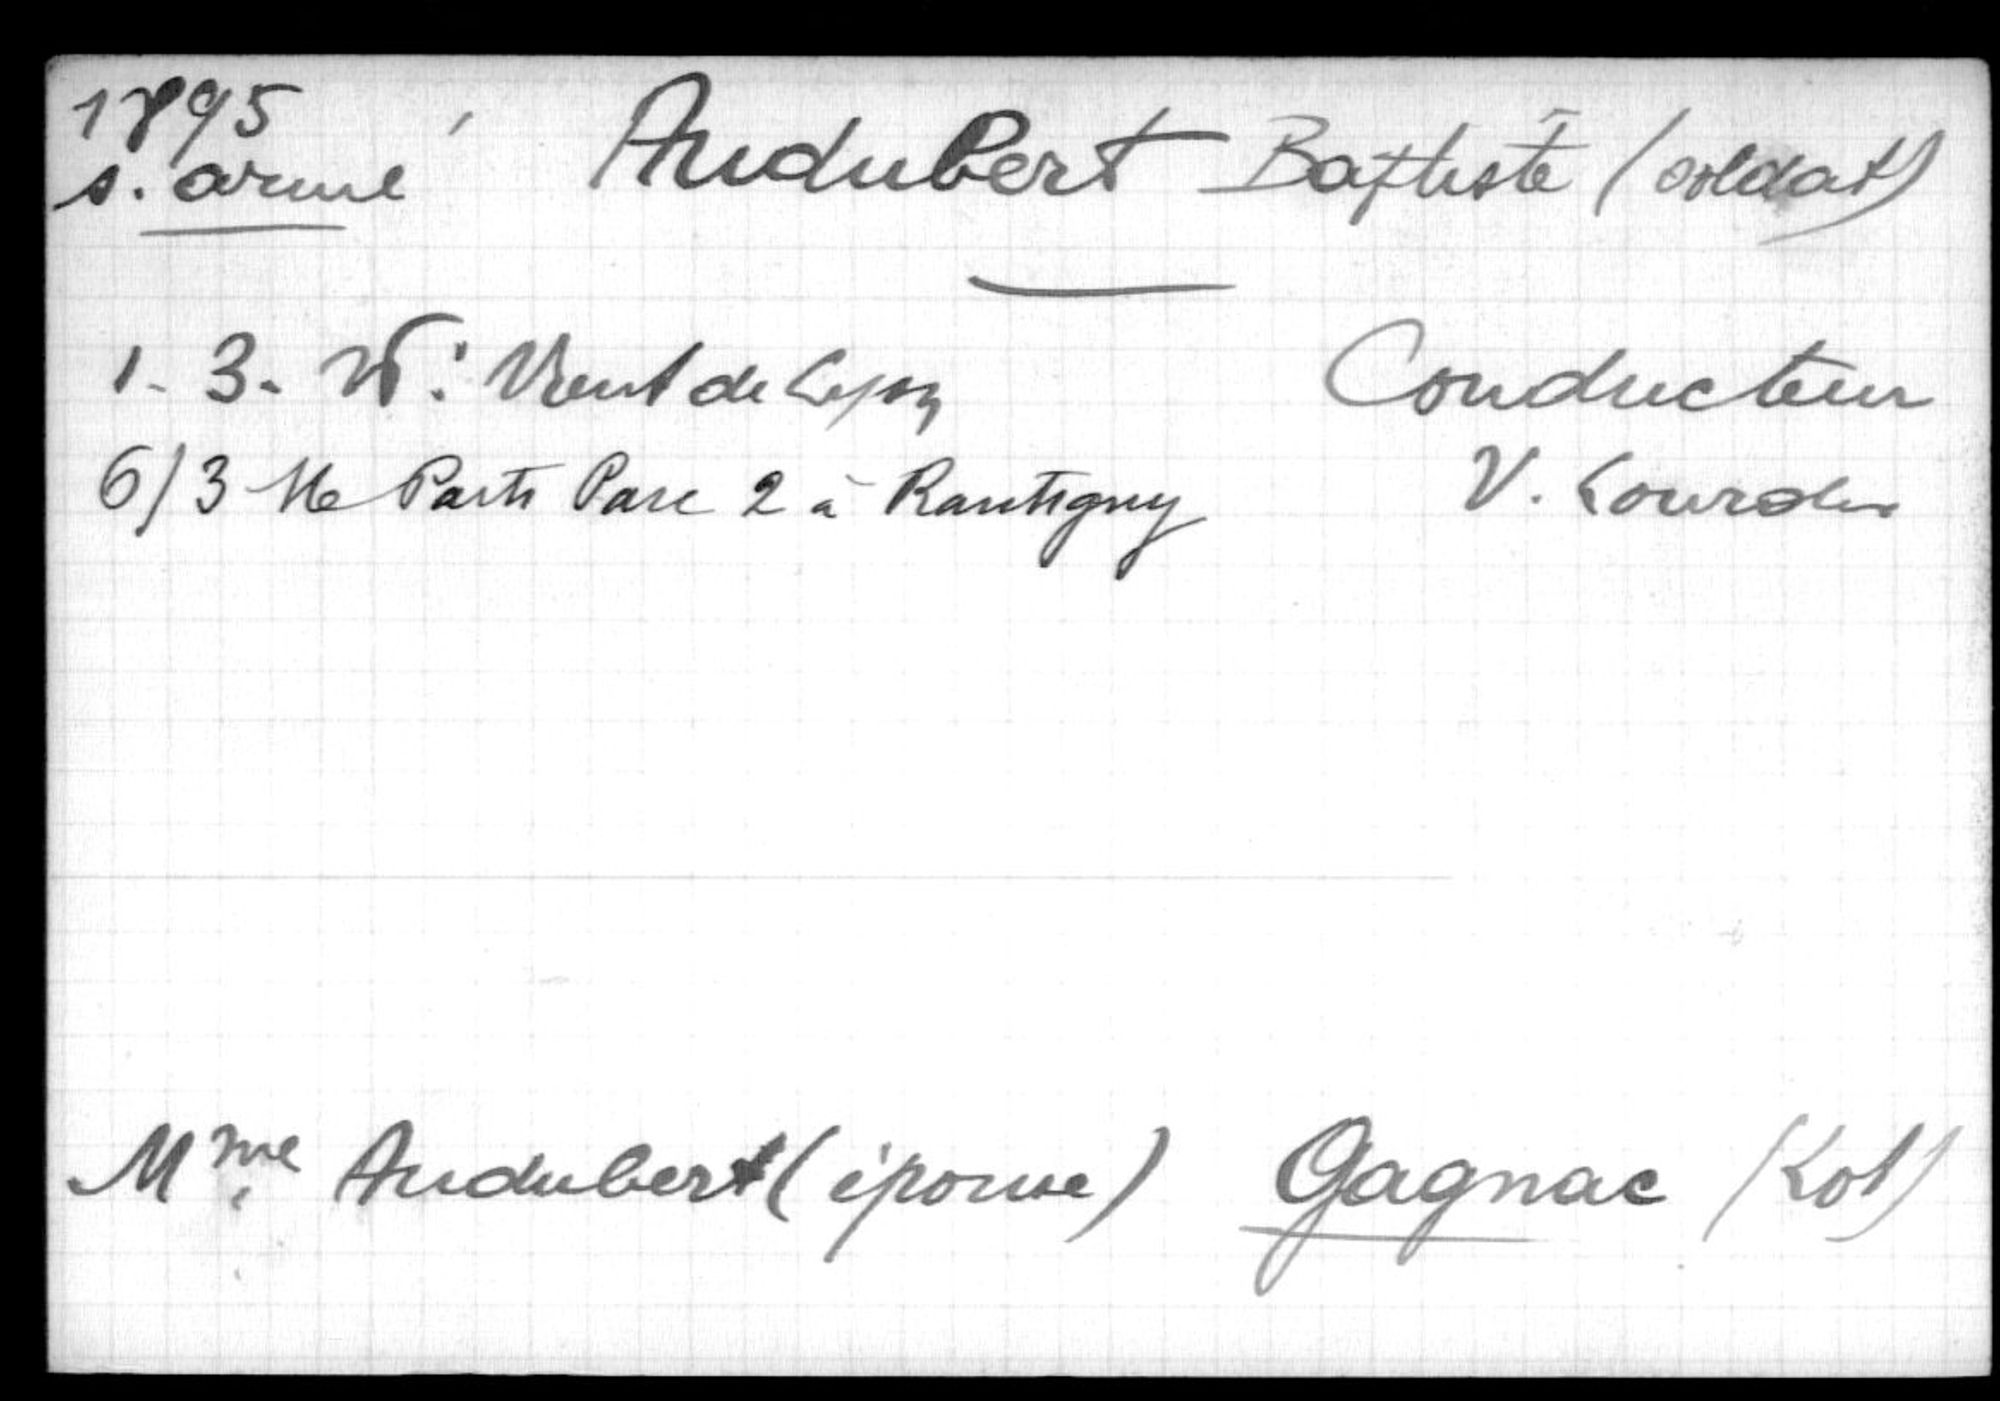 1895 Audubert Baptiste (soldat)
s. armé
1. 3. Vient de Lyon Conducteur
6/3 Parti Parc 2 à Rantigny V. Lourdes
Mme Audubert (épouse) Gagnac (Lot)